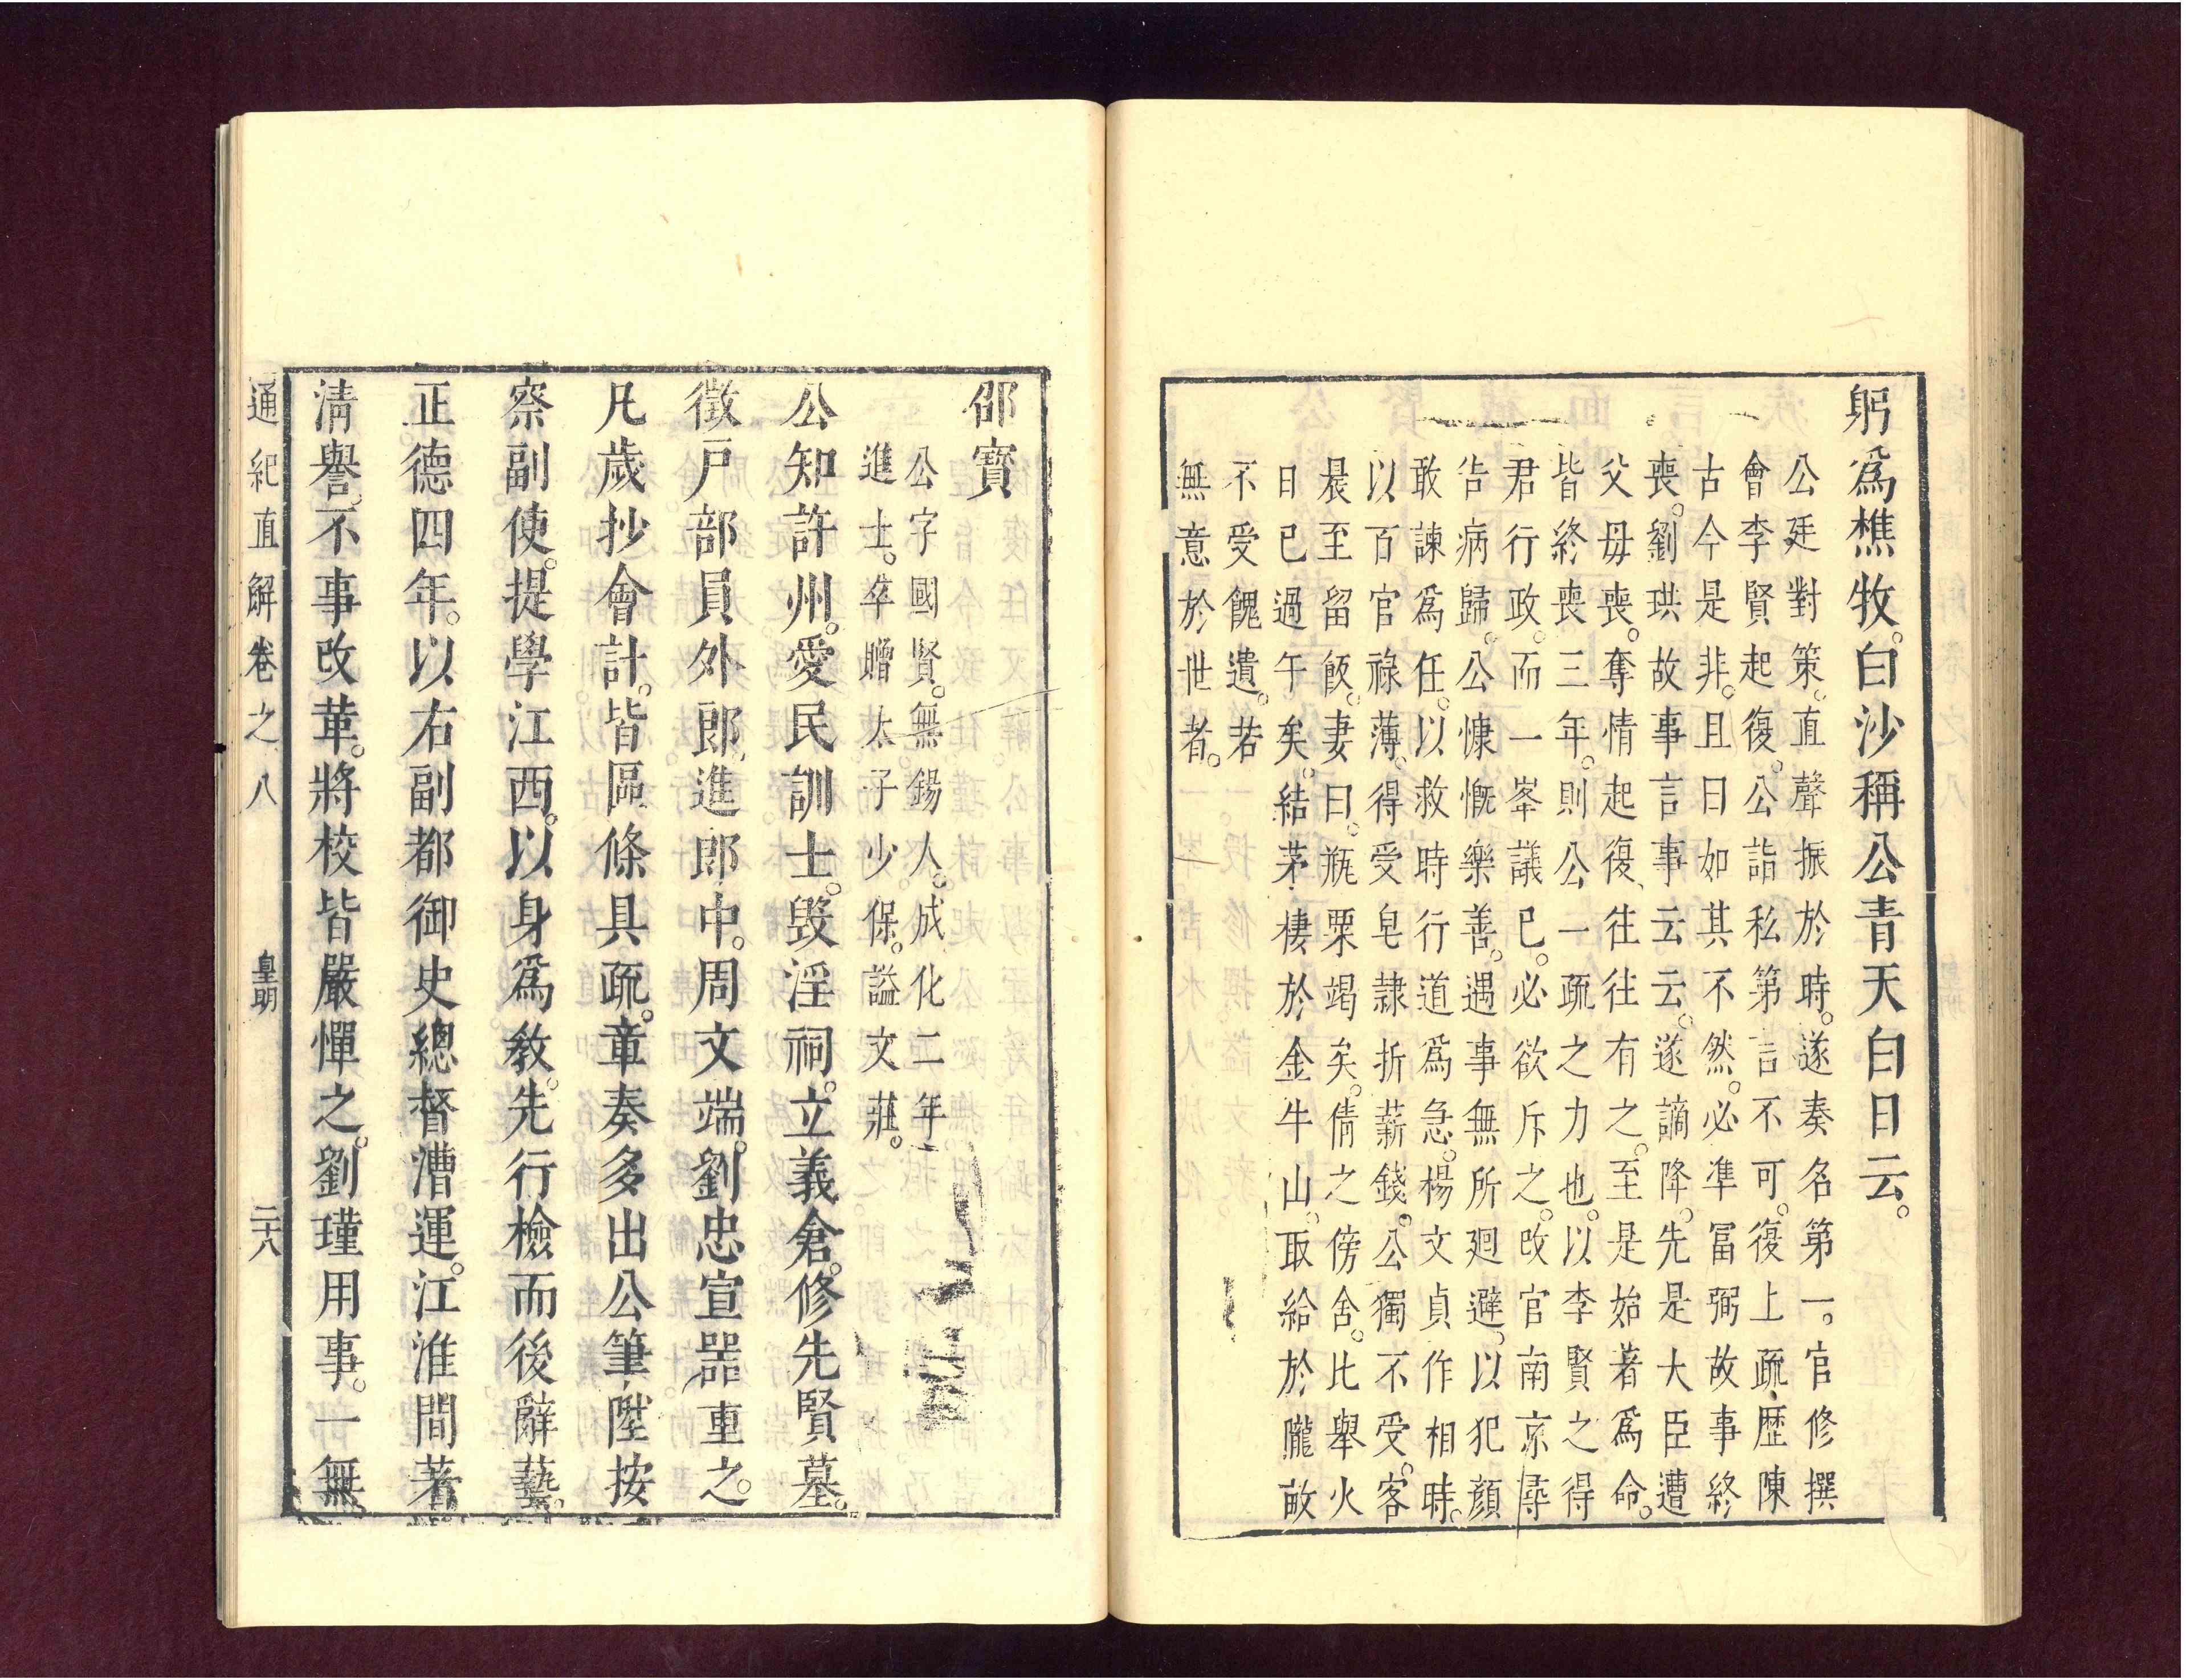 躬爲樵牧。白沙稱公青天白日云。
公廷對策。直聲振於時。遂奏名第一。官修撰
會李賢起復。公詣私第言不可。復上疏、歷陳
古今是非。且曰如其不然。必準冨弼故事終
喪。劉珙故事言事云云。遂謫降。先是大臣遭
父母喪。奪情起復、往往有之。至是始著爲命。
皆終喪三年。則公一疏之力也。以李賢之得
君行政。而一峯議已。必欲斥之。改官南京尋
告病歸。公慷慨樂善。遇事無所廻避。以犯顔
敢諫爲任。以救時行道爲急。楊文貞作相時。
以百官祿薄。得受皂隷折薪錢。公獨不受。客
晨至留飯。妻曰。瓶粟竭矣。倩之傍舍。比舉火
日已過午矣。結茅棲於金牛山。取給於隴畝
不受餽遺。若
無意於世者。
邵寳
公字國賢。無錫人。成化二年
進士。卒贈太子少保。謚文莊。
公知許州。愛民訓士。毀淫祠。立義倉。修先賢墓。
徴戸部員外郎、進郎中。周文端。劉忠宣器重之。
凡歲抄會計。皆區條具疏。章奏多出公筆、陞按
察副使。提學江西。以身爲教。先行檢而後辭藝。
正德四年。以右副都御史總督漕運。江淮間著
清譽。不事改革。將校皆嚴憚之。劉瑾用事。一無
通紀直解卷之八 皇明 二十八